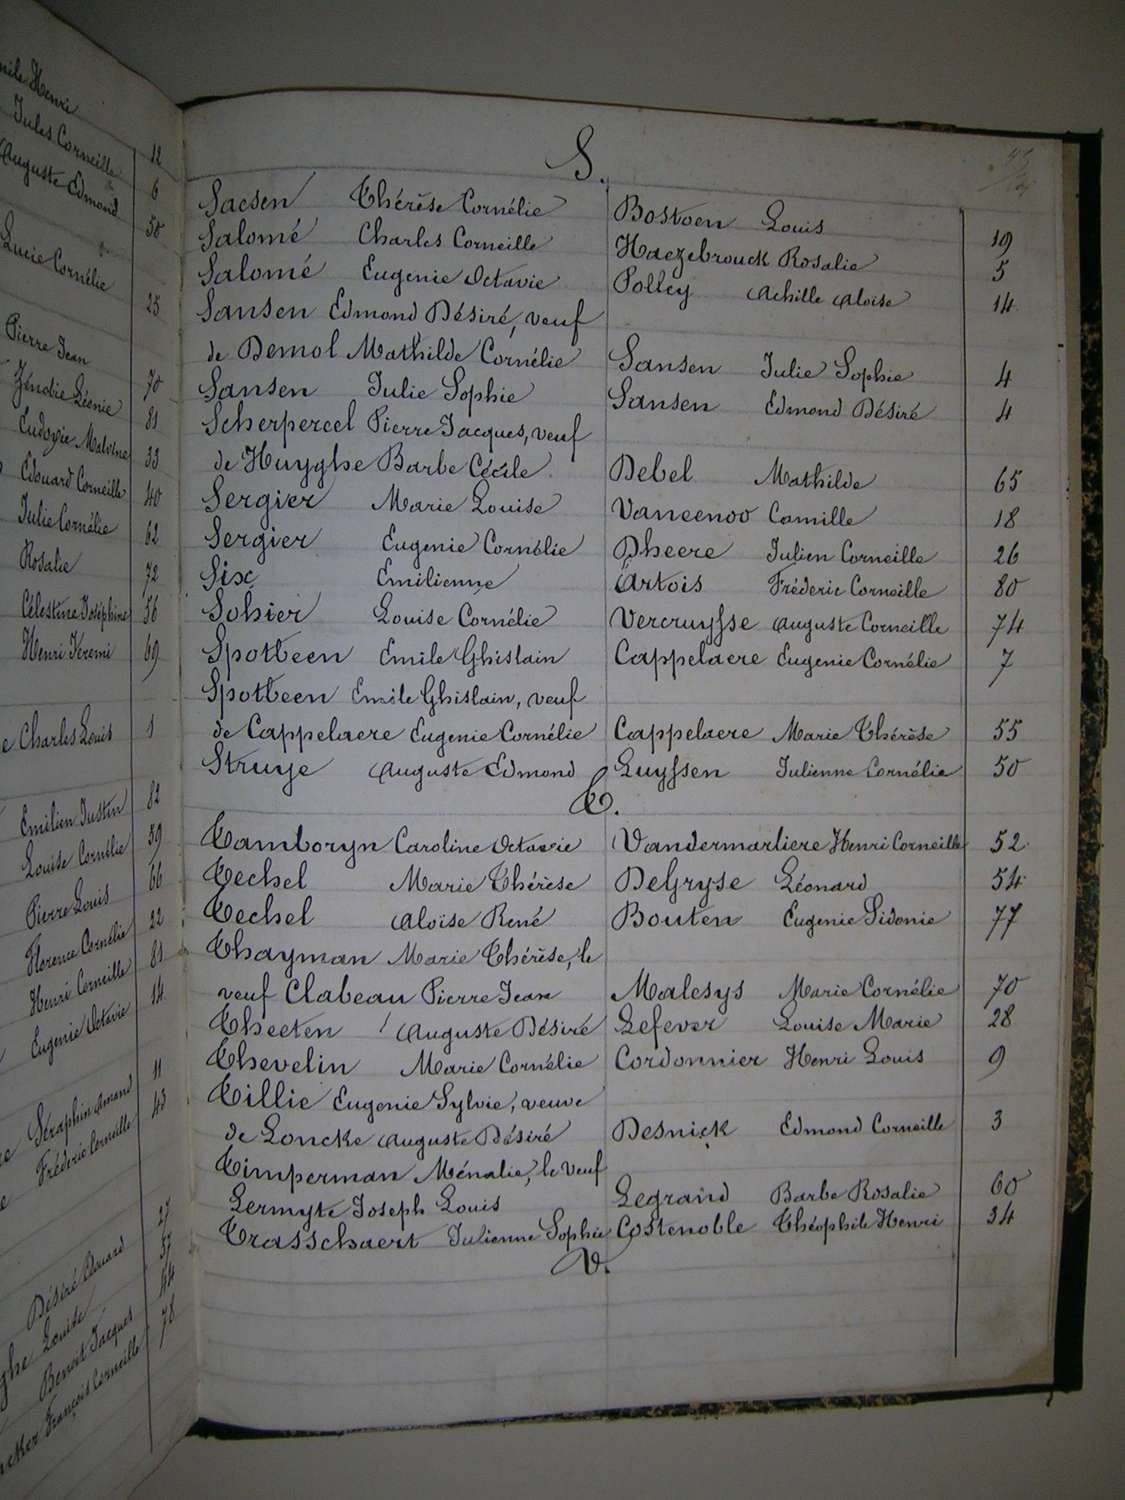 mile Henri 12
Jules Corneille 6
Auguste Edmond 50
Lucie Cornélie 25
Pierre Jean 70
Zénobie Léonie 81
Eudoxie Malvine 33
Edouard Corneille 40
Julie Cornélie 62
Rosalie 72
Célestine Joséphine 56
Henri Jérémi 69
e Charles Louis 1
Emilien Justin 82
Louise Cornélie 39
Pierre Louis 66
Florence Cornélie 22
Henri Corneille 81
Eugenie Octavie 14
Séraphin Amand 11
Fréderic Corneille 43
27
Désiré Edouard 57
ghe Louise 44
Benoit Jacques 78
cker François Corneille
S.
Saesen Thérèse Cornélie Bostoen Louis 19
Salomé Charles Corneille Haezebrouck Rosalie 5
Salomé Eugenie Octavie Polley Achille Aloïse 14
Sansen Edmond Désiré, veuf
de Demol Mathilde Cornélie Sansen Julie Sophie 4
Sansen Julie Sophie Sansen Edmond Désiré 4
Scherpereel Pierre Jacques, veuf
de Huyghe Barbe Cécile Debel Mathilde 65
Sergier Marie Louise Vaneenoo Camille 18
Sergier Eugenie Cornélie Dheere Julien Corneille 26
Six Emilienne Artois Fréderic Corneille 80
Sohier Louise Cornélie Vercruysse Auguste Corneille 74
Spotbeen Emile Ghislain Cappelaere Eugenie Cornélie 7
Spotbeen Emile Ghislain, veuf
de Cappelaere Eugenie Cornélie Cappelaere Marie Thérèse 55
Struye Auguste Edmond Luyssen Julienne Cornélie 50
T.
Tamboryn Caroline Octavie Vandermarliere Henri Corneille 52
Techel Marie Thérèse DeGryse Léonard 54
Techel Aloïse René Bouten Eugenie Sidonie 77
Thayman Marie Thérèse, le
veuf Clabeau Pierre Jean Malesys Marie Cornélie 70
Theeten Auguste Désiré Lefever Louise Marie 28
Thevelin Marie Cornélie Cordonnier Henri Louis 9
Tillie Eugenie Sylvie, veuve
de Loncke Auguste Désiré Desnick Edmond Corneille 3
Timperman Ménalie, le veuf
Lermyte Joseph Louis Legrand Barbe Rosalie 60
Trasschaert Julienne Sophie Costenoble Théophile Henri 34
V.